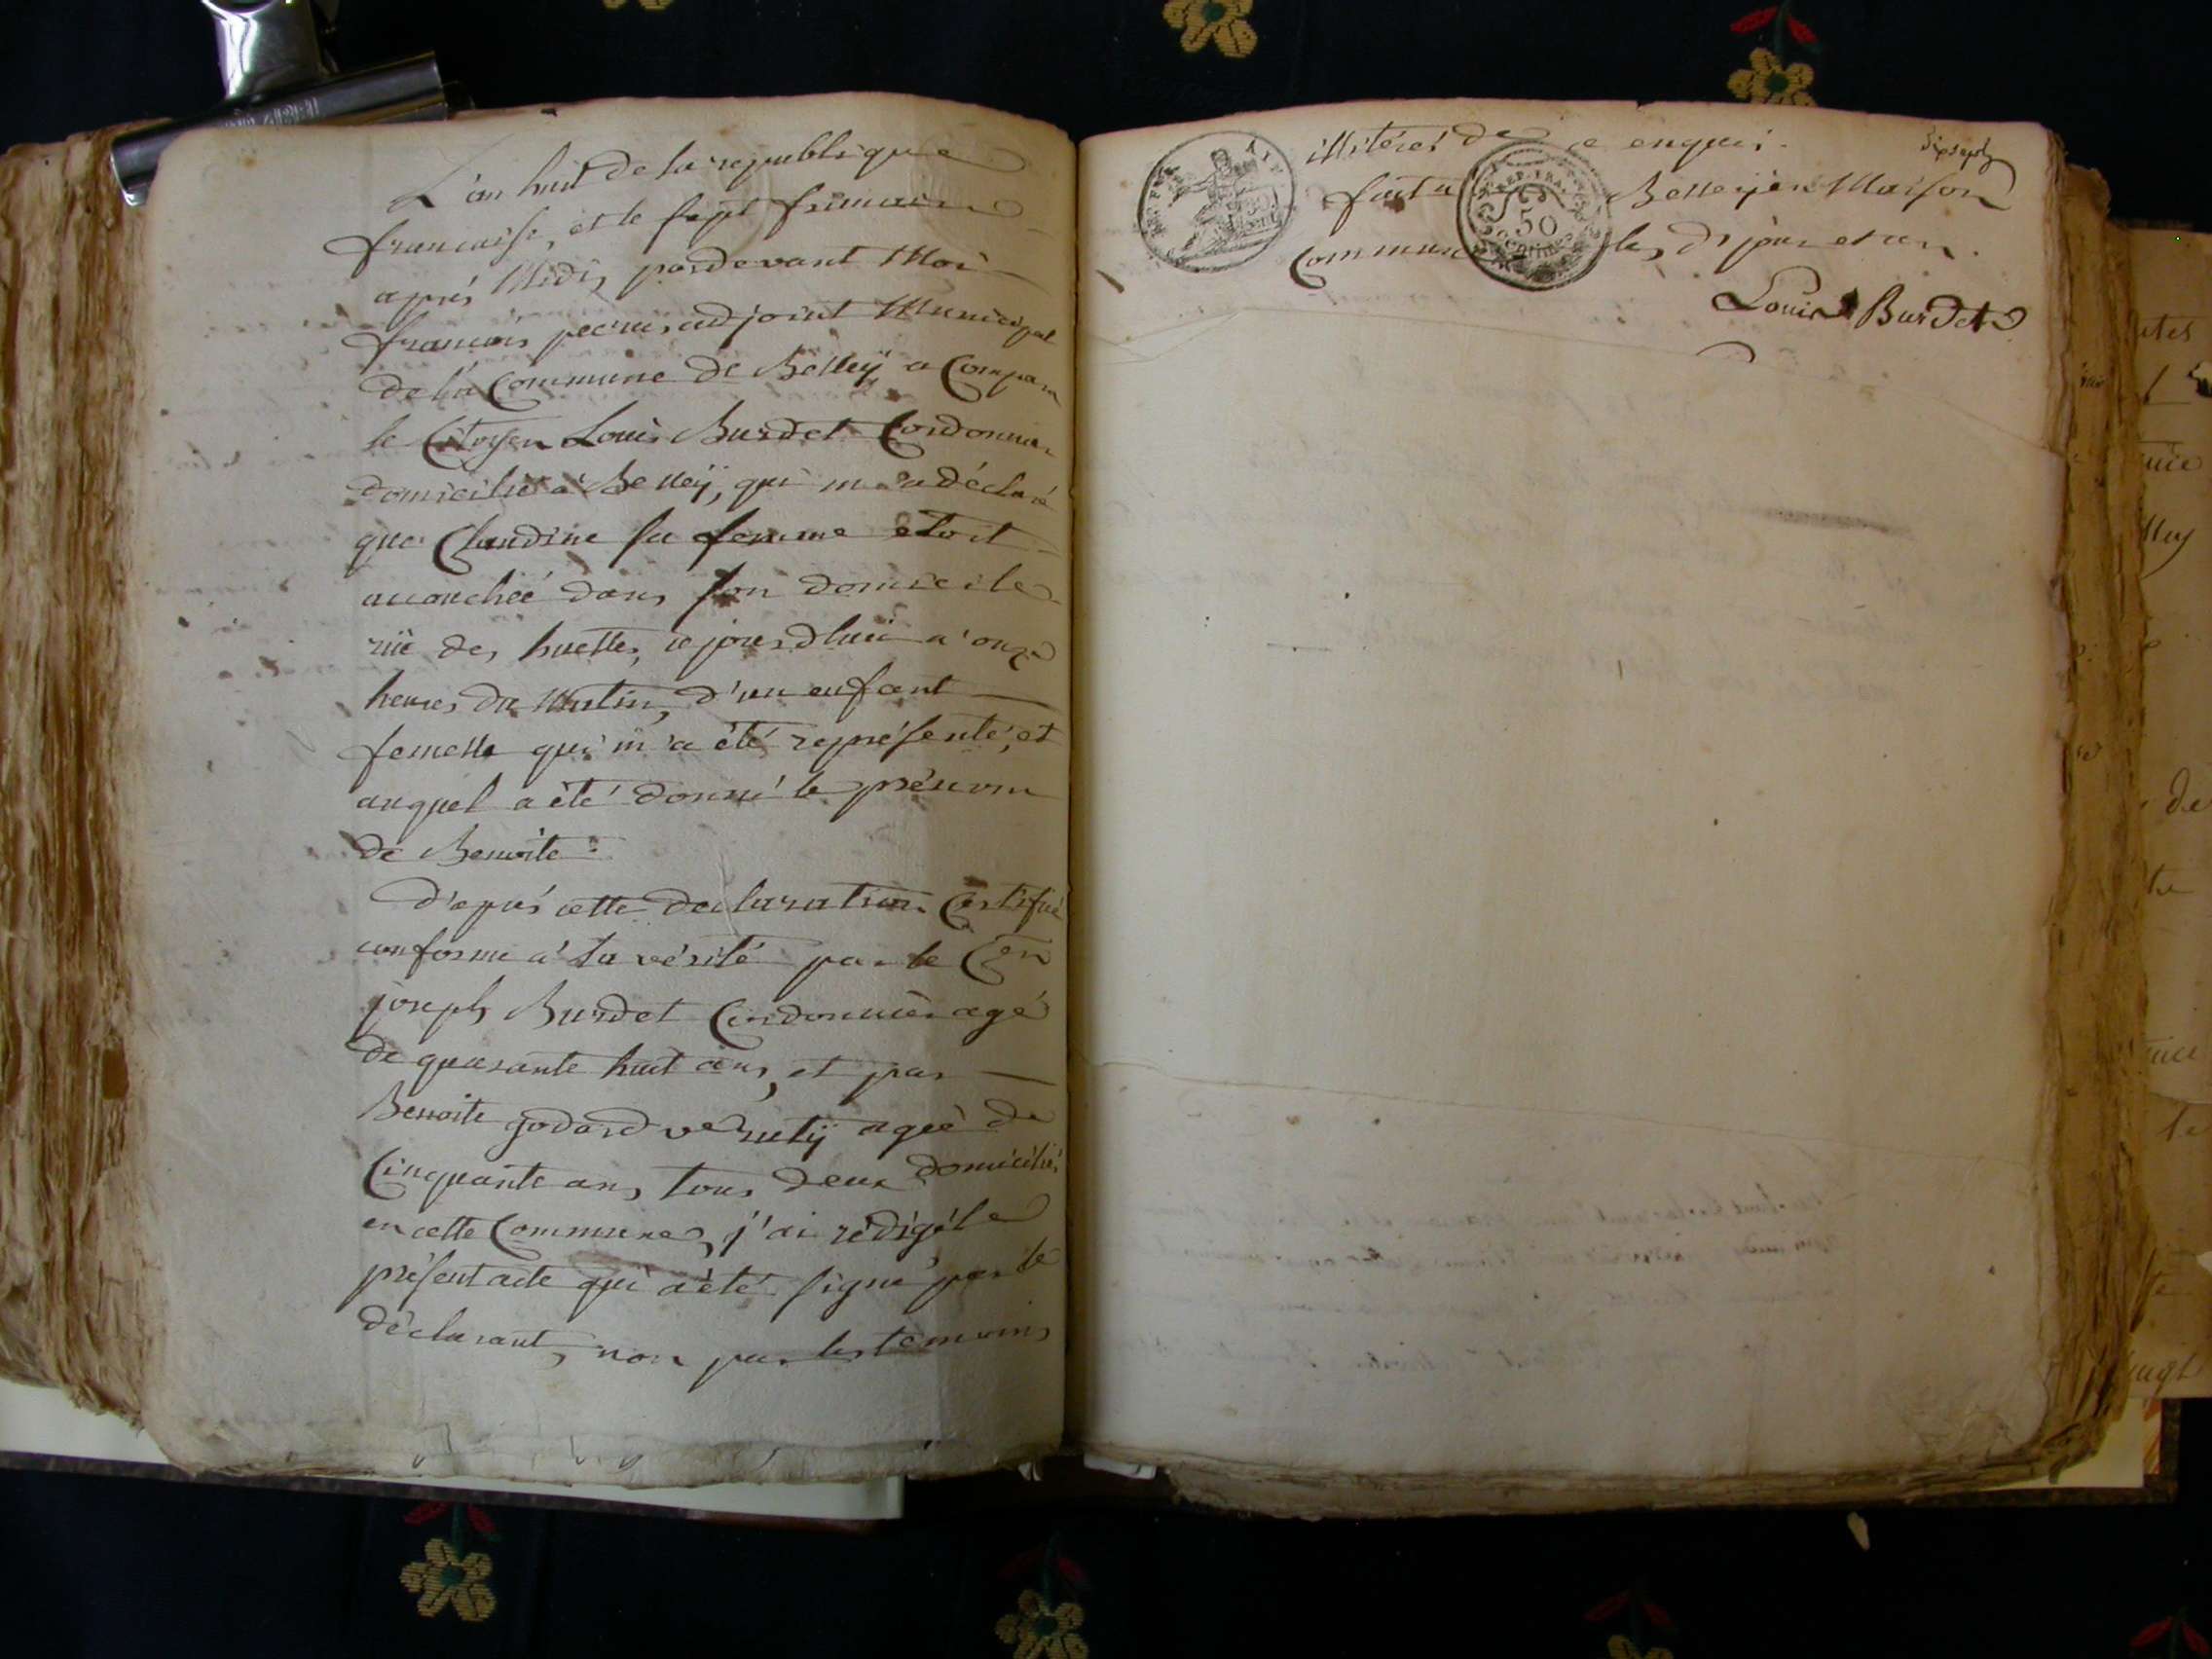 L'an huit de la republique
francaise, et le sept frimaire
aprés Midi, pardevant Moi
francois adjoint Municipal
de la Commune de Belleÿ a Comparu
le Citoyen Louis Burdet Cordonnier
domicilié a Belleÿ, qui m'a déclaré
que Claudine sa femme etoit
accouchée dans son domicile
rüe des huelles, ce jourdhui a onze
heures du Matin, d'un enfant
femelle qui m'a été représenté, et
auquel a été donné le prénom
de Benoite.
D'aprés cette declaration Certifiée
conforme a la vérité par le Cen
joseph Burdet Cordonnier agé
de quarante huit ans, et par
Benoite godard agée de
Cinquante ans, tous deux domiciliés
en cette Commune, j'ai rédigé le
présent acte qui a été signé par le
déclarant, non par les temoins
illitérés de ce enquis.
fait a Belleÿ en Maison
Commune les dt jour et an.
Louis Burdet
REP. FRA.
50
CENTIMES